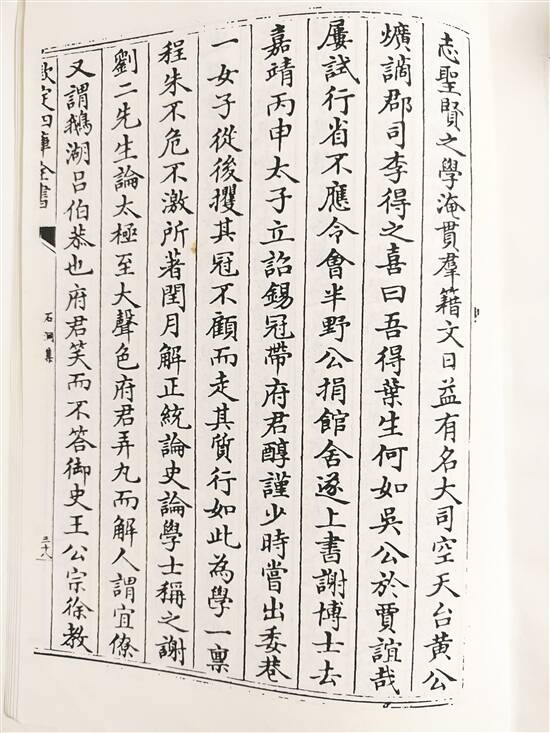 志聖賢之學淹貫羣籍文日益有名大司空天台黃公
爌謫郡司李得之喜曰吾得葉生何如吳公於賈誼哉
屢試行省不應令會半野公捐館舍遂上書謝博士去
嘉靖丙申太子立詔錫冠帶府君醇謹少時嘗出委巷
一女子從後攫其冠不顧而走其質行如此為學一稟
程朱不危不激所著閏月解正統論史論學士稱之謝
劉二先生論太極至大聲色府君弄丸而解人謂宜僚
又謂鵝湖呂伯恭也府君笑而不答御史王公宗徐教
欽定四庫全書
石洞集
三十八